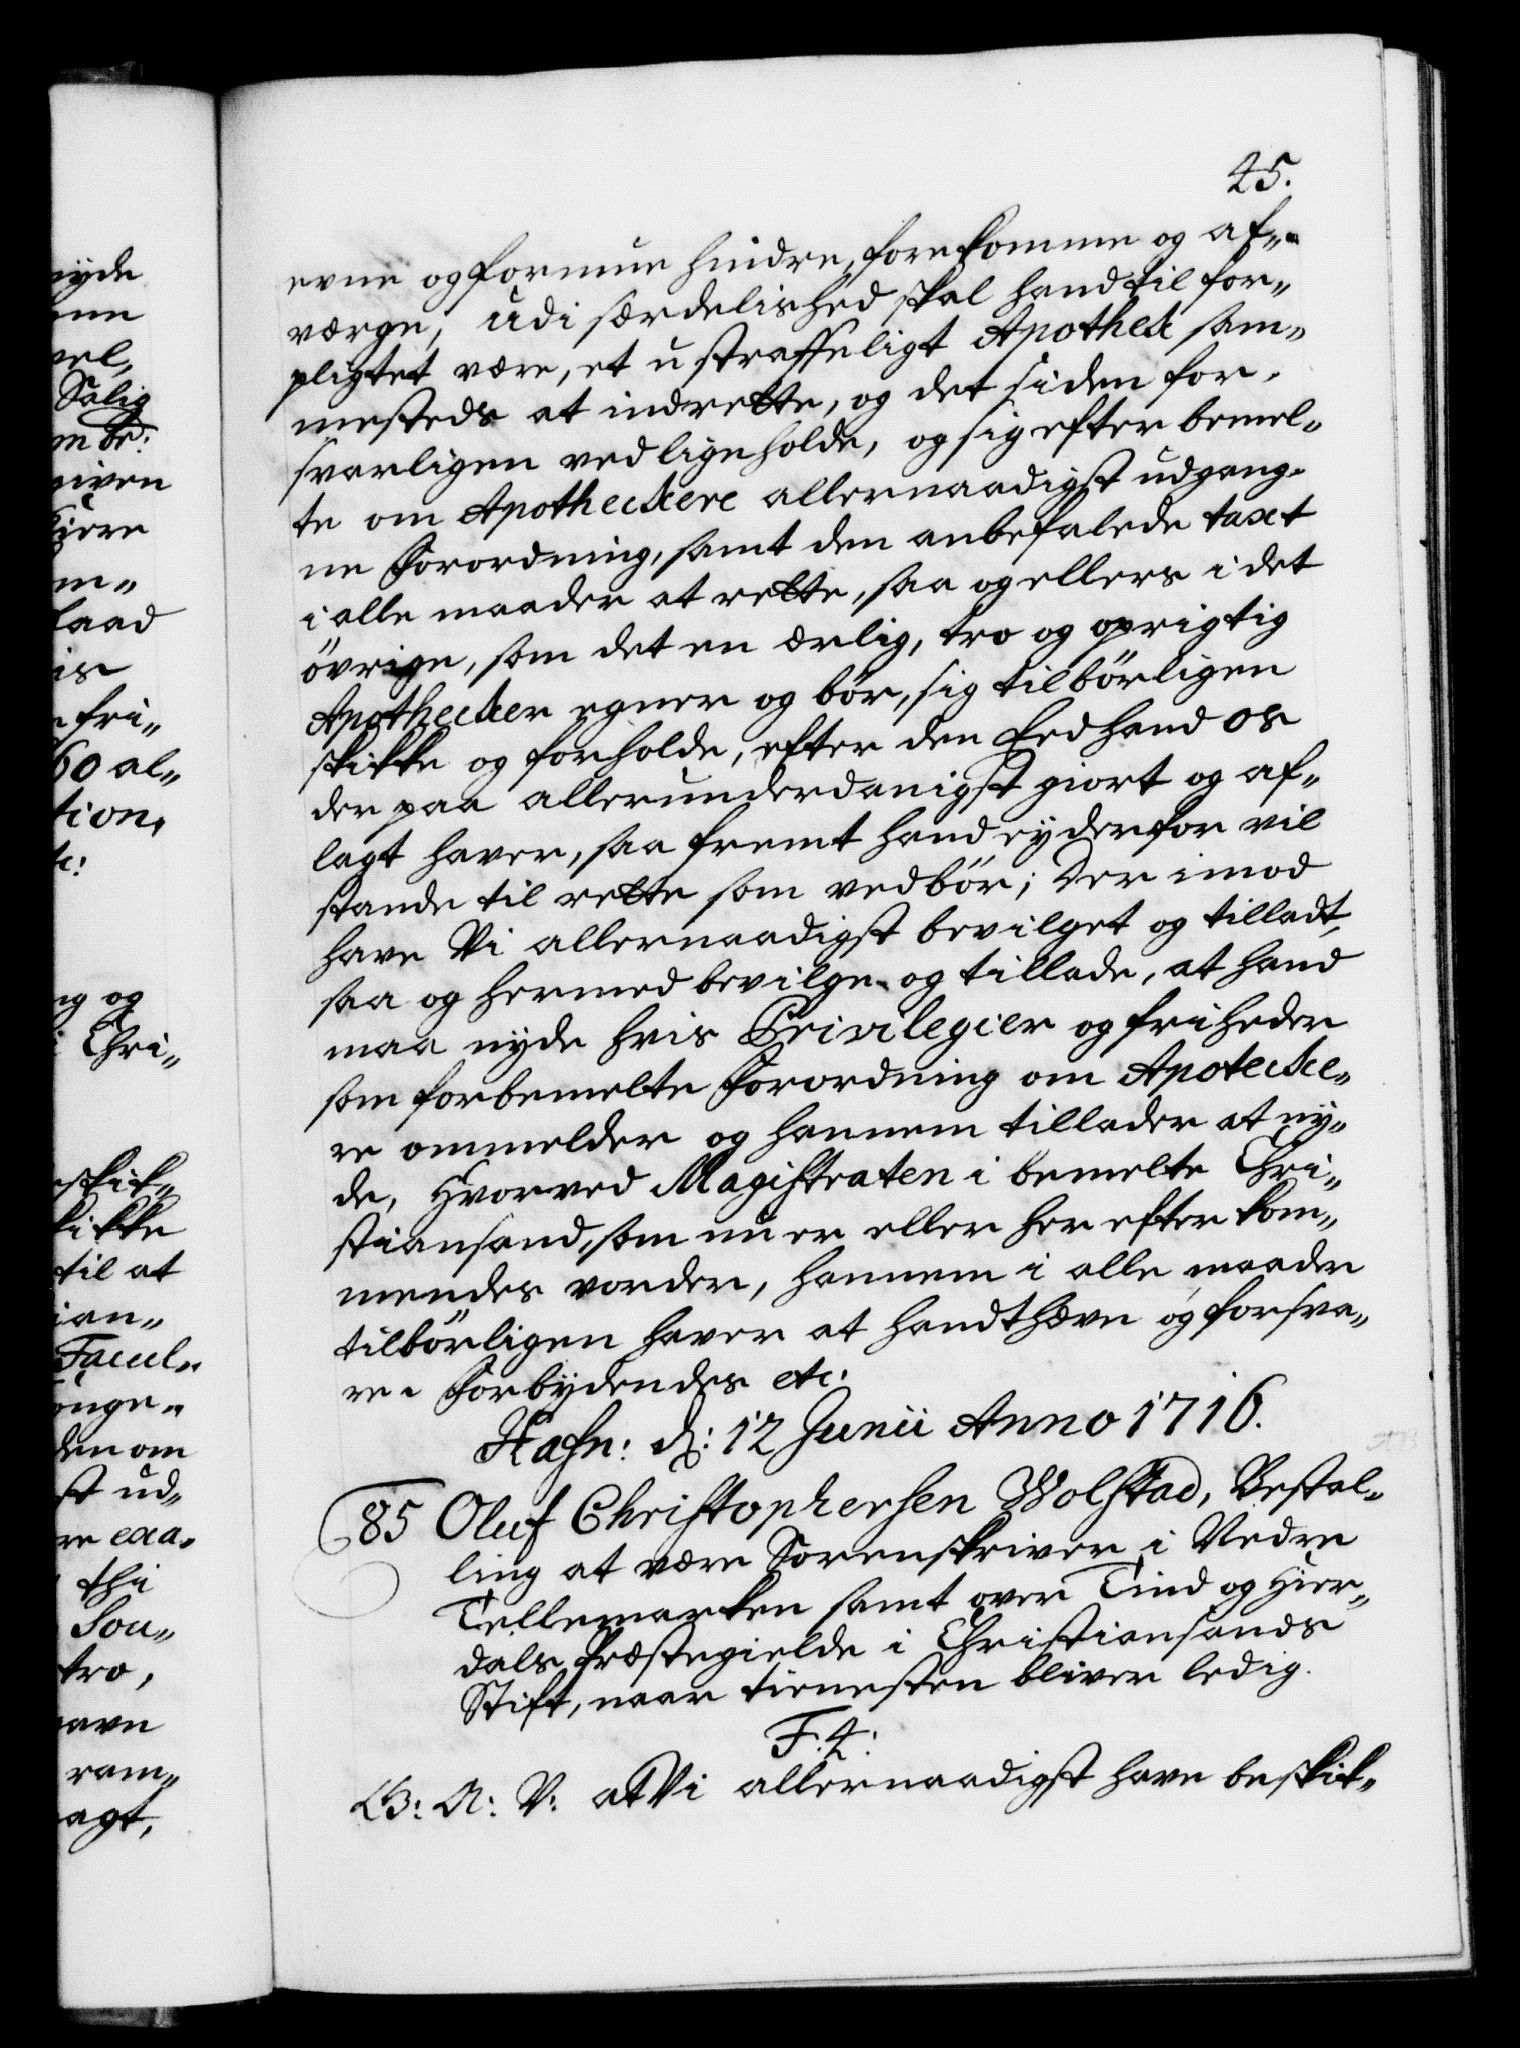 45.
evne og formue hindre, forekomme og af-
værge, udi særdelished skal hand til for-
pligtet være, et ustraffeligt Apotheck sam-
mesteds at indrette, og det siden for-
svarligen vedligeholde, og sig efter bemel-
te om Apotheckere allernaadigst udgang-
ne Forordning, samt den anbefalede taxt
i alle maader at rette, saa og ellers i det
øvrige, som det en ærlig, tro og oprigtig
Apothecker egner og bør, sig tilbørligen
skikke og forholde, efter den Eed hand os
der paa allerunderdanigst giort og af-
lagt haver, saa fremt hand ey derfor vil
stande til rette som vedbør; Der imod
have Vi allernaadigst bevilget og tilladt,
saa og hermed bevilge og tillade, at hand
maa nyde hvis Privilegier og friheder
som forbemelte Forordning om Apotecke-
re ommelder og hannem tillader at ny-
de, Hvorved Magistraten i bemelte Chri-
stiansand, som nu er eller her efter kom-
mendes vorder, hannem i alle maader
tilbørligen haver at handthæve og forsva-
re. Forbydendes etc:
Hafn: d: 12 Junii Anno 1716.
85 Oluf Christophersen Wolstad, Bestal-
ling at være Sorenskriver i Nedre
Tellemarken samt over Tind og Hier-
dals Præstegielde i Christiansands
Stift, naar tienesten bliver ledig.
F. 4:
G: A: V: at Vi allernaadigst have beskik-
nyde
vel,
Salig
given
m-
laad
is
fri-
60 al-
tion,
tc:
ng og
i Chri-
skik-
kikke
til at
ian-
Facul-
den om
st ud-
re exa-
thi
Sou-
tro,
ram-
agt,